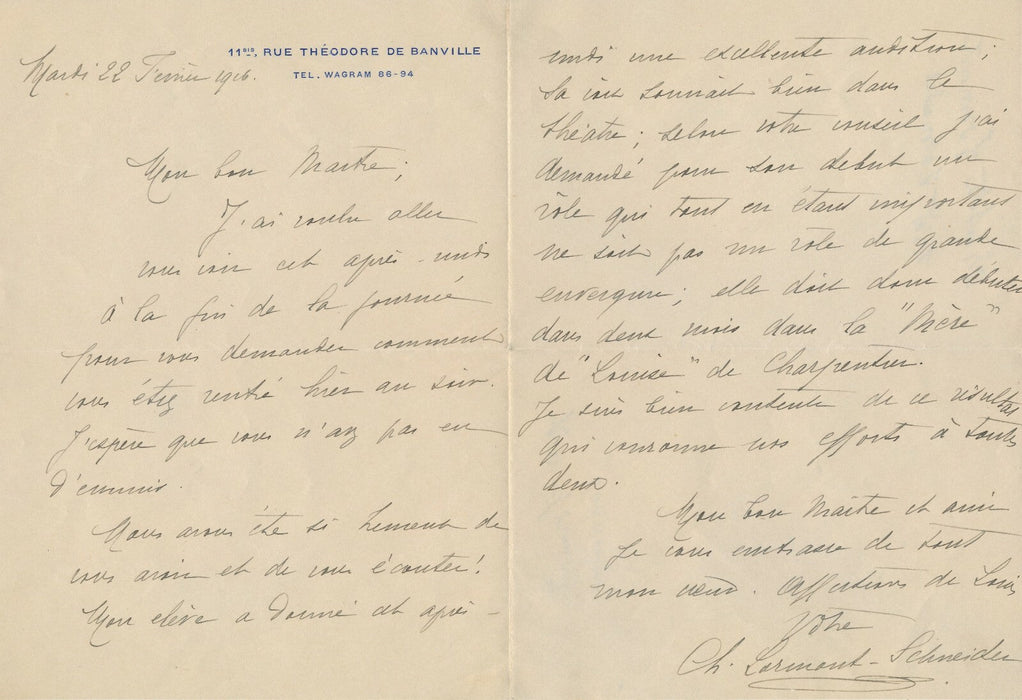 11BIS, RUE THÉODORE DE BANVILLE
TEL. WAGRAM 86-94
Mardi 22 Février 1916.
Mon bon Maître;
J'ai voulu aller
vous voir cet après-midi
à la fin de la journée
pour vous demander comment
vous étiez rentré hier au soir.
J'espère que vous n'avez pas eu
d'ennuis.
Nous avons été si heureux de
vous avoir et de vous écouter!
Mon élève a donné cet après-
midi une excellente audition;
Sa voix sonnait bien dans le
théâtre; selon votre conseil j'ai
demandé pour son début un
rôle qui tout en étant important
ne soit pas un rôle de grande
envergure; elle doit donc débuter
dans deux mois dans la "Mère"
de "Louise" de Charpentier.
Je suis bien contente de ce résultat
qui couronne nos efforts à toutes
deux.
Mon bon Maître et ami
je vous embrasse de tout
mon cœur. Affections de Louis
Votre
Ch. Lormont-Schneider